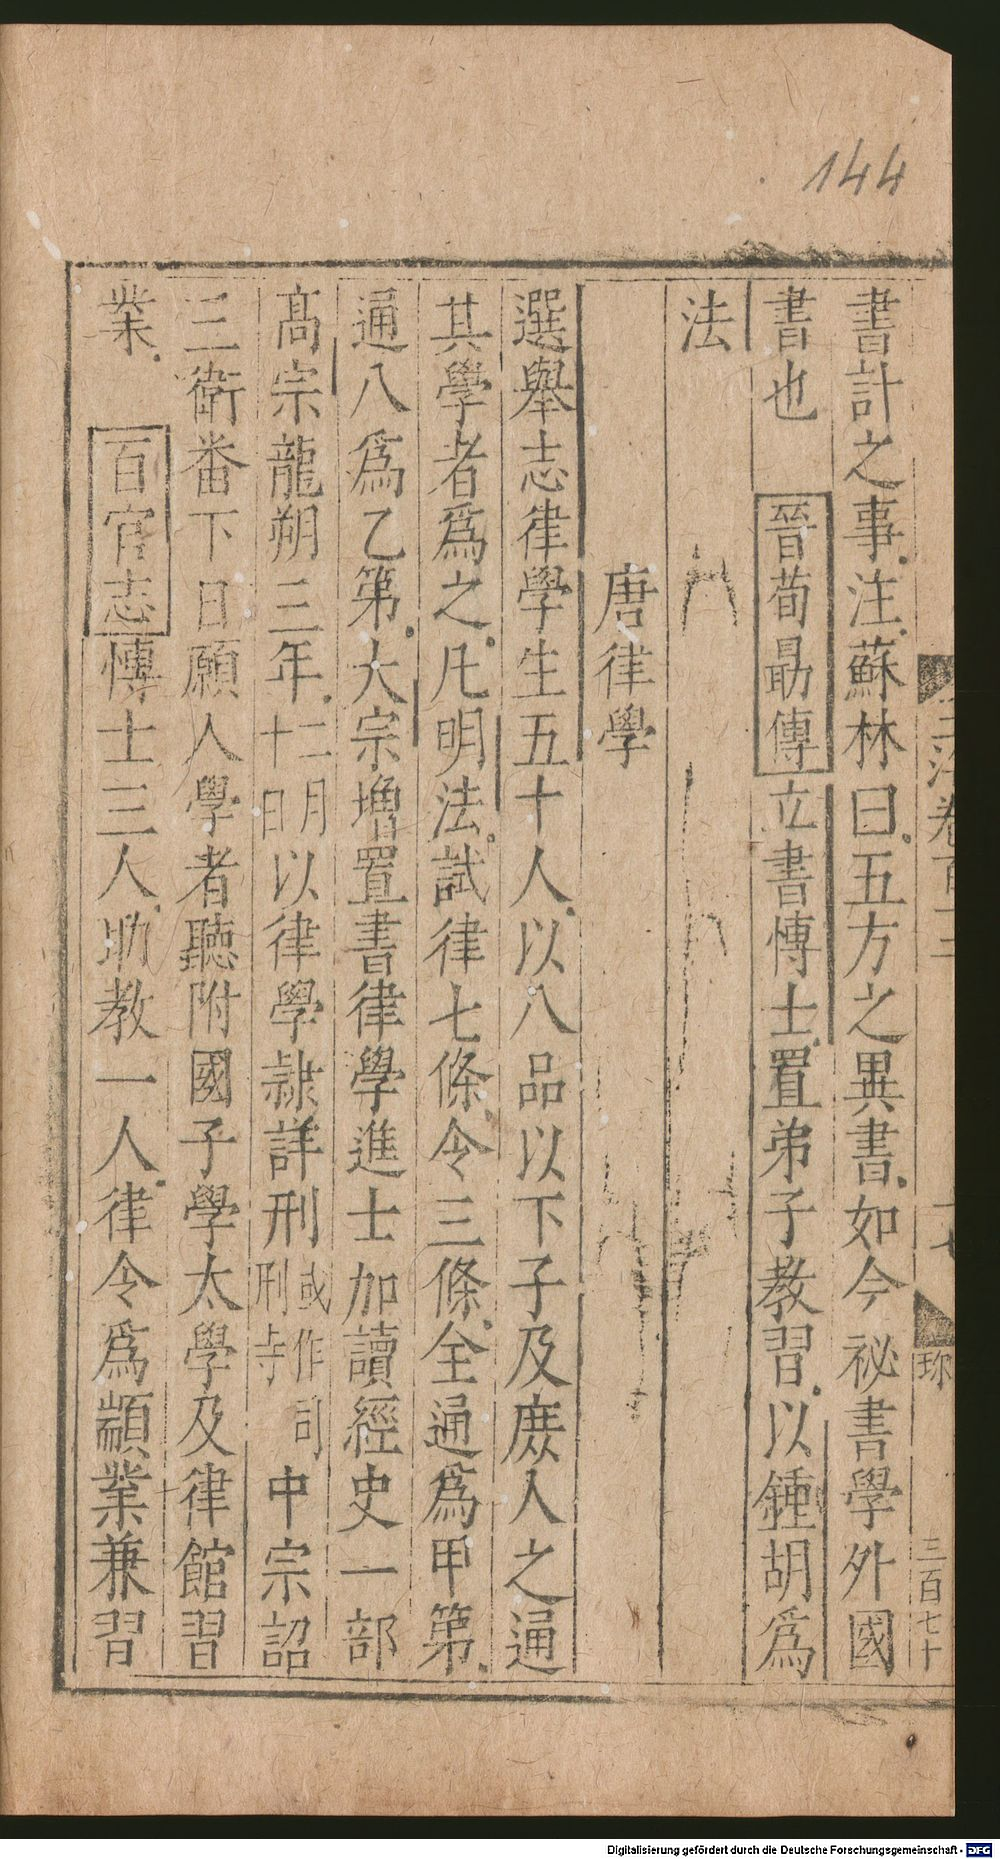 144
書計之事注蘇林曰五方之異書如今祕書學外國
書也 晉荀勗傳立書博士置弟子教習以鍾胡爲
法
唐律學
選舉志律學生五十人以八品以下子及庶人之通
其學者爲之凡明法試律七條令三條全通爲甲第
通八爲乙第大宗增置書律學進士加讀經史一部
高宗龍朔三年二月十一日以律學隷詳刑或作司刑寺中宗詔
三衛番下日願入學者聽附國子學太學及律館習
業 百官志博士三人助教一人律令爲顓業兼習
三百七十
Digitalisierung gefördert durch die Deutsche Forschungsgemeinschaft - DFG